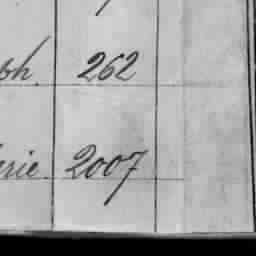 ph. 262
erie 2007